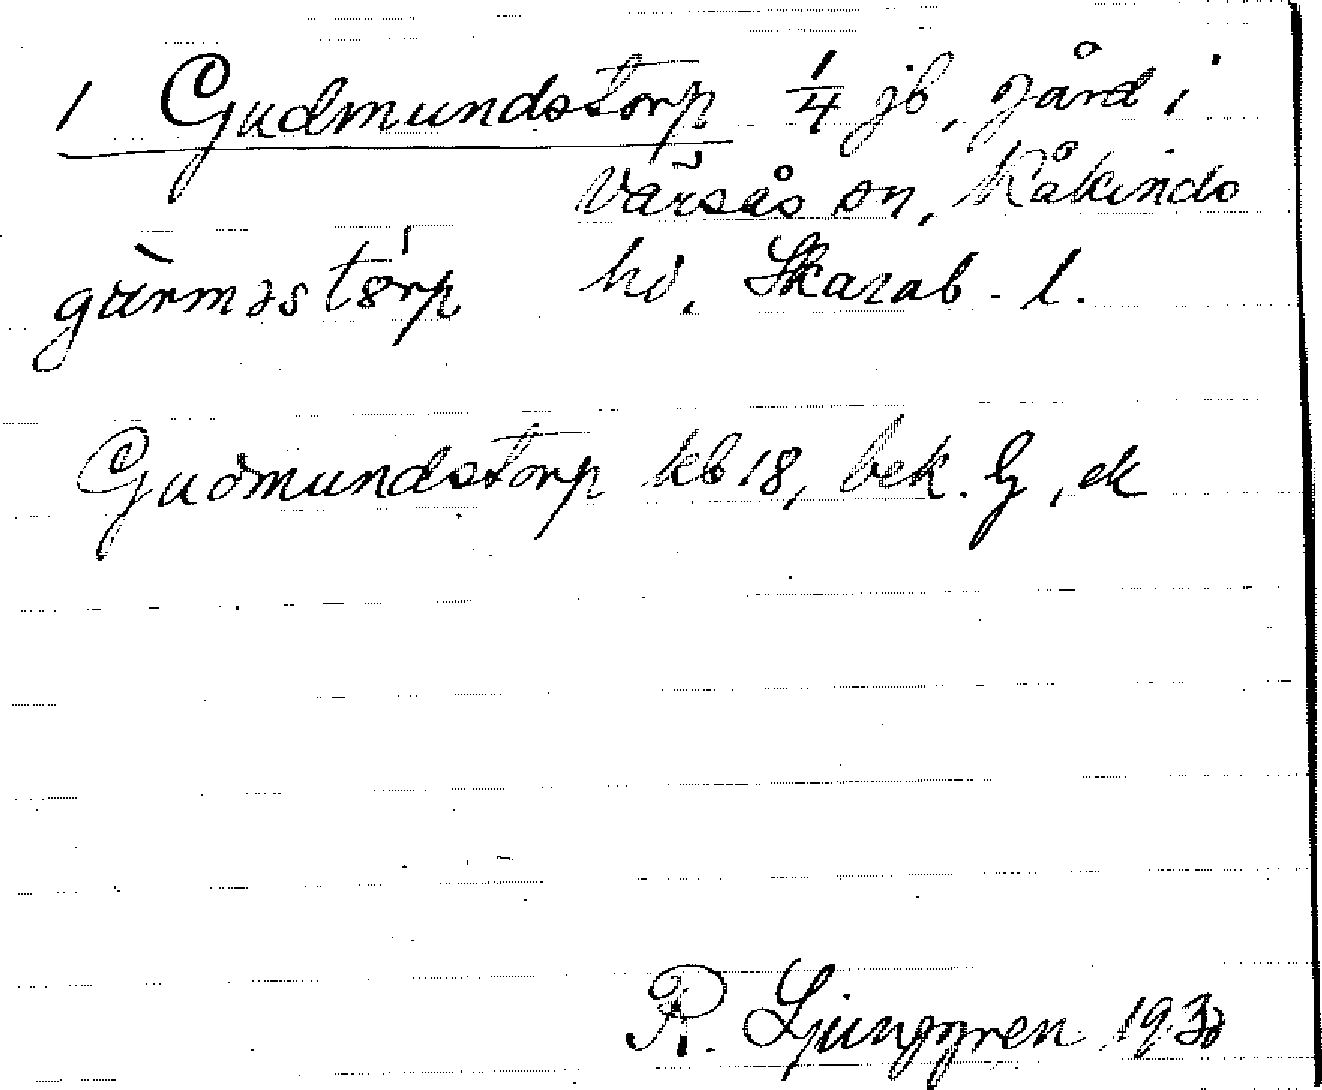 1 Gudmundstorp 1/4 jb, gård i
Värsås sn, Kåkinds
gùrməstɵ́rp hd, Skarab. l.
Gudmundstorp kb 18, bek. G, ek
R. Ljunggren 1930